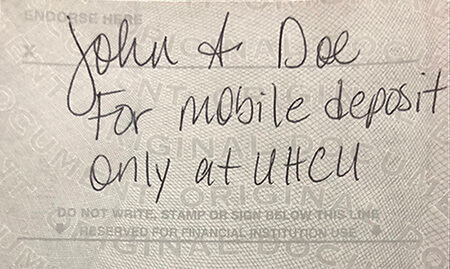 ENDORSE HERE
X
John A Doe
For mobile deposit
only at UHCU
ORIGINAL DOCUMENT
DO NOT WRITE, STAMP OR SIGN BELOW THIS LINE
RESERVED FOR FINANCIAL INSTITUTION USE